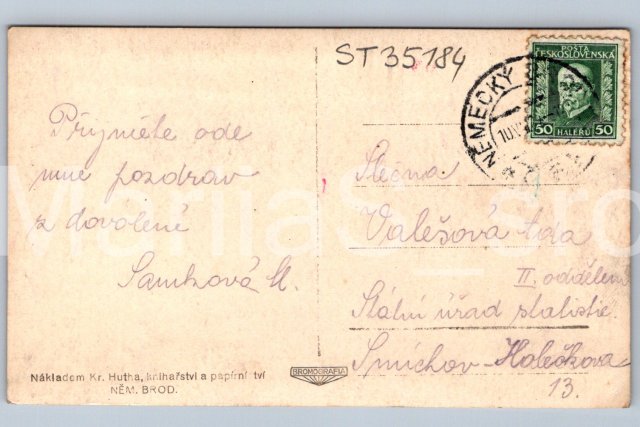 ST 35184
POŠTA
ČESKOSLOVENSKÁ
50 HALÉRŮ 50
NĚMECKÝ
Přijměte ode
mne pozdrav
z dovolené
Samková M.
Slečna
Valešová Ida
II. oddělení
Státní úřad statistic.
Smíchov-Holečkova
13.
Nákladem Kr. Hutha, knihařství a papírnictví
NĚM. BROD.
BROMOGRAFIA